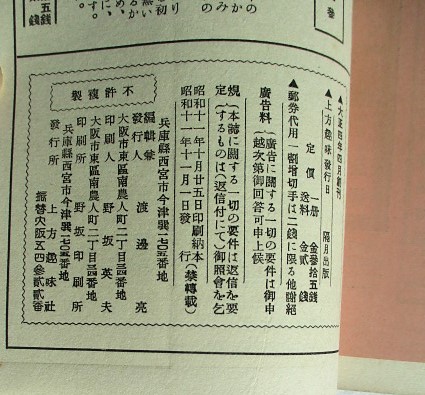 ▲大正四年四月創刊
▲上方趣味發行日　隔月出版
定價　一册　金參拾五錢
送料　金貳錢
▲郵券代用一割增切手は二錢に限る他謝絕
廣告料（廣告に關する一切の要件は御申
越次第御回答可申上候
規定（本誌に關する一切の要件は返信を要
するものは（返信付にて）御照會を乞
昭和十一年十月廿五日印刷納本
昭和十一年十一月一日發行（禁轉載）
不許複製
兵庫縣西宮市今津巽一七〇五番地
編輯兼
發行人　渡邊亮
大阪市東區南農人町二丁目三四番地
印刷人　野坂英夫
大阪市東區南農人町二丁目三四番地
印刷所　野坂印刷所
兵庫縣西宮市今津巽一七〇五番地
發行所　上方趣味社
振替大阪五四參貳貳番